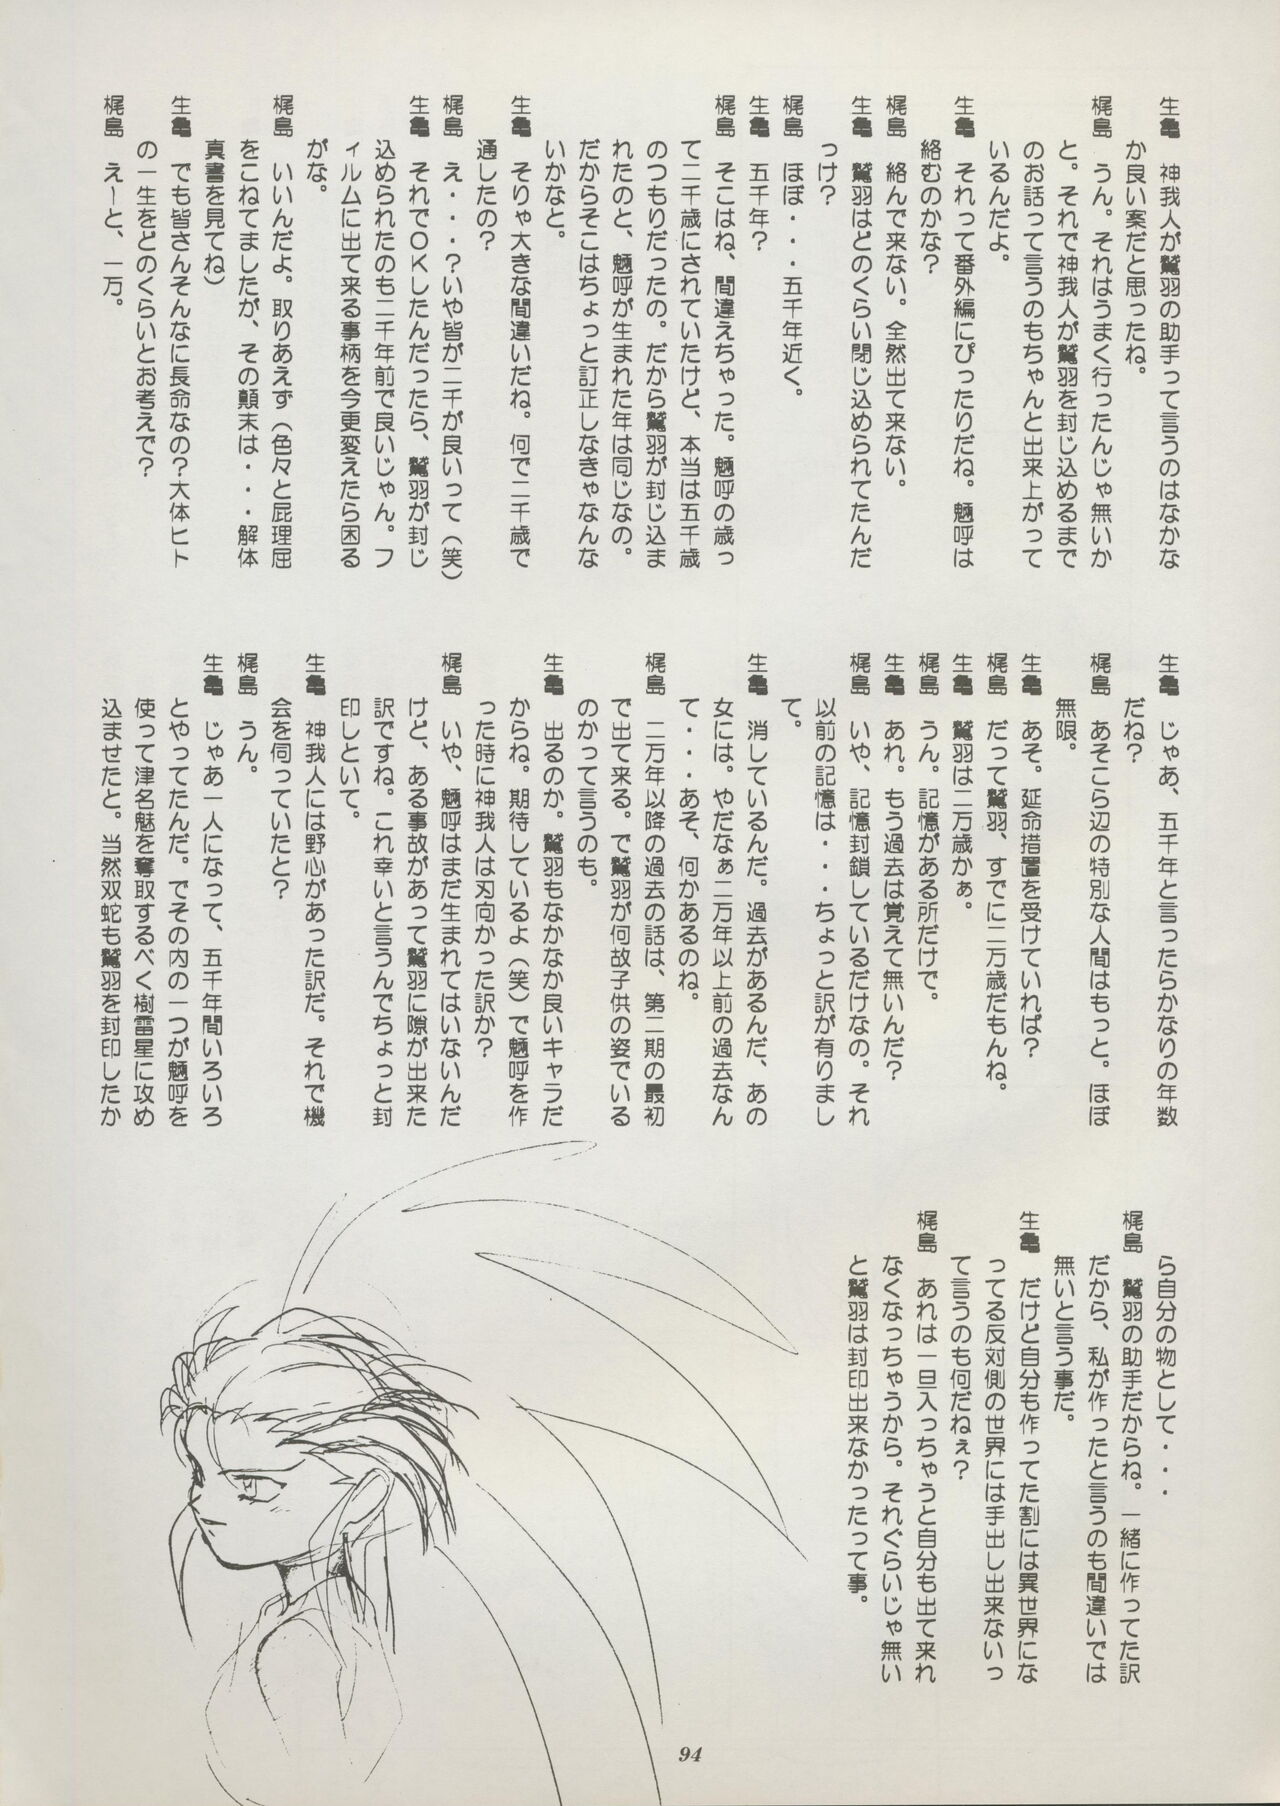 生亀　神我人が鷲羽の助手って言うのはなかなか
か良い案だと思ったね。
梶島　うん。それはうまく行ったんじゃ無いか
と。それで神我人が鷲羽を封じ込めるまで
のお話って言うのもちゃんと出来上がって
いるんだよ。
生亀　それって番外編にぴったりだね。魎呼は
絡むのかな？
梶島　絡んで来ない。全然出て来ない。
生亀　鷲羽はどのくらい閉じ込められてたんだ
っけ？
梶島　ほぼ・・・五千年近く。
生亀　五千年？
梶島　そこはね、間違えちゃった。魎呼の歳っ
て二千歳にされていたけど、本当は五千歳
のつもりだったの。だから鷲羽が封じ込ま
れたのと、魎呼が生まれた年は同じなの。
だからそこはちょっと訂正しなきゃなんな
いかなと。
生亀　そりゃ大きな間違いだね。何で二千歳で
通したの？
梶島　え・・・？いや皆が二千が良いって（笑）
生亀　それでＯＫしたんだったら、鷲羽が封じ
込められたのも二千年前で良いじゃん。フ
ィルムに出て来る事柄を今更変えたら困る
がな。
梶島　いいんだよ。取りあえず（色々と屁理屈
をこねてましたが、その顛末は・・・解体
真書を見てね）
生亀　でも皆さんそんなに長命なの？大体ヒト
の一生をどのくらいとお考えで？
梶島　えーと、一万。
生亀　じゃあ、五千年と言ったらかなりの年数
だね？
梶島　あそこら辺の特別な人間はもっと。ほぼ
無限。
生亀　あそ。延命措置を受けていれば？
梶島　だって鷲羽、すでに二万歳だもんね。
生亀　鷲羽は二万歳かぁ。
梶島　うん。記憶がある所だけで。
生亀　あれ。もう過去は覚えて無いんだ？
梶島　いや、記憶封鎖しているだけなの。それ
以前の記憶は・・・ちょっと訳が有りまし
て。
生亀　消しているんだ。過去があるんだ、あの
女には。やだなぁ二万年以上前の過去なん
て・・・あそ、何かあるのね。
梶島　二万年以降の過去の話は、第二期の最初
で出て来る。で鷲羽が何故子供の姿でいる
のかって言うのも。
生亀　出るのか。鷲羽もなかなか良いキャラだ
からね。期待しているよ（笑）で魎呼を作
った時に神我人は刃向かった訳か？
梶島　いや、魎呼はまだ生まれてはいないんだ
けど、ある事故があって鷲羽に隙が出来た
訳ですね。これ幸いと言うんでちょっと封
印しといて。
生亀　神我人には野心があった訳だ。それで機
会を伺っていたと？
梶島　うん。
生亀　じゃあ一人になって、五千年間いろいろ
とやってたんだ。でその内の一つが魎呼を
使って津名魅を奪取するべく樹雷星に攻め
込ませたと。当然双蛇も鷲羽を封印したか
ら自分の物として・・・
梶島　鷲羽の助手だからね。一緒に作ってた訳
だから、私が作ったと言うのも間違いでは
無いと言う事だ。
生亀　だけど自分も作ってた割には異世界にな
ってる反対側の世界には手出し出来ないっ
て言うのも何だねぇ？
梶島　あれは一旦入っちゃうと自分も出て来れ
なくなっちゃうから。それぐらいじゃ無い
と鷲羽は封印出来なかったって事。
94